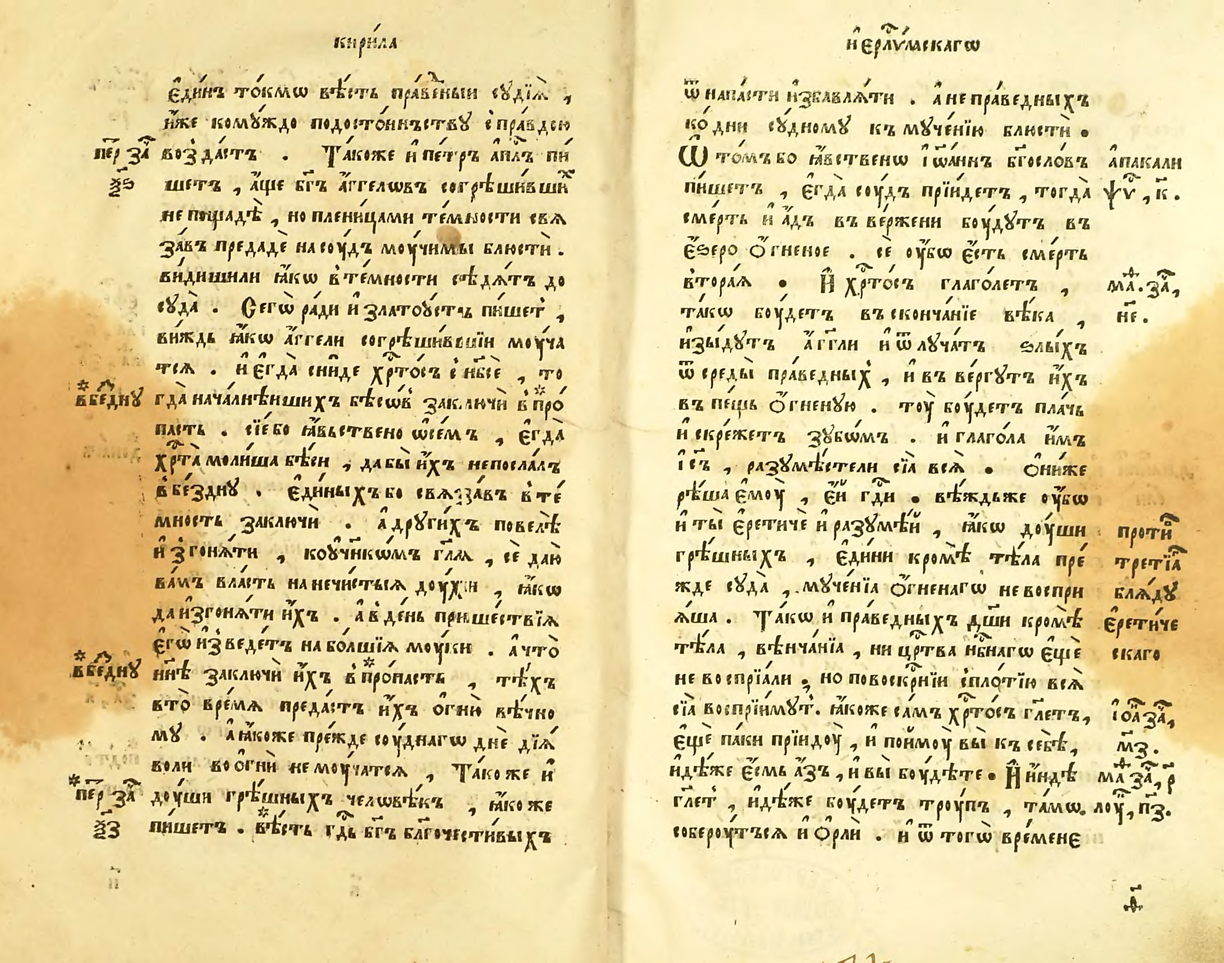 кири́ла
є҆ди́нъ то́кмѡ вѣ́сть пра́ведныи сꙋдїѧ̀ ,
и҆́же комꙋ́ждо подосто́инъствꙋ спра́вдою
пер за҄ возда́стъ . Та́коже и҆пе́тръ а҆пл҃ъ пи
ѯ҃ѕ шетъ , а҆́ще бг҃ъ а҆́ггелѡвъ согрѣ́шивши҄х
не пощадѣ̀ , но плени́цами те́мности свѧ
за́въ предадѐ насоу́дъ моу́чимы блюстѝ .
ви́дишили ꙗ҆́кѡ в те́мности сѣдѧ́тъ до
сꙋда̀ . Сегѡ̀ ра́ди и҆златоу́стъ пи́шет ,
ви́ждь ꙗ҆́кѡ а҆́ггели согрѣши́вшїи моу́ча
тсѧ . и҆є҆гда̀ сни́де хрⷭ҇тосъ с нб҃сѐ , то
вбе́днꙋ гда̀ нача́лнѣишихъ бѣсѡ́въ заключѝ в про́
пасть . сїе́ бо ꙗ҆́вьствено ѡ҆все́мъ , є҆гда̀
хрⷭ҇та̀ моли́ша бѣ́си , дабы̀ и҆́хъ непосла́лъ
в бе́зднꙋ . є҆ди́ныхъ бо свѧза́въ в те́
мность заключѝ . а҆дрꙋги́хъ повелѣ̀
и҆згонѧ́ти , коу҆ченикѡ́мъ гл҃ѧ , сѐ даю̀
ва́мъ вла́сть на нечи́стыѧ дꙋ́хи , ꙗ҆́кѡ
да и҆згонѧ́ти и҆́хъ . а҆в де́нь прише́ствїѧ
є҆гѡ̀ и҆зведе́тъ на бо́лшїѧ моу́ки . а҆что̀
вбе́днꙋ нн҃ѣ заключѝ и҆́хъ в про́пасть , тѣ́хъ
вто̀ вре́мѧ преда́стъ и҆́хъ огню̀ вѣ́чно
мꙋ . а҆ ꙗ҆́коже пре́жде соу́днагѡ днѐ дїѧ́
воли во огнѝ не моу́чатсѧ , Та́ко же и҆
пер за҄ доу́ши грѣ́шныхъ человѣ́къ , ꙗ҆́ко же
ѯ҃з пи́шетъ . вѣ́сть гдⷭ҇ь бг҃ъ благочести́выхъ
и҆єрⷭ҇лиⷨ́скагѡ
ѿ напа́сти и҆збавлѧ́ти . а҆ не пра́ведныхъ
ко́ дни сꙋ́дномꙋ къ мꙋче́нїю блюстѝ .
Ѡ҆ то́мъ бо ꙗ҆́вственѡ і҆ѡа́ннъ бг҃осло́въ а҆пакали
пи́шетъ , є҆гда̀ соу́дъ прїи́детъ , тогда̀ ѱⷭ҇ѵ , к҃ .
сме́рть и҆ а҆́дъ въ ве́ржени боу́дутъ въ
є҆́зеро ѻ҆́гненое . сѐ оу҆́бѡ є҆́сть сме́рть
втора́ѧ . И҆ хрⷭ҇то́съ глаго́летъ , мⷴа . за҄ ,
та́кѡ боу́детъ въ сконча́нїе вѣ́ка , н҃е .
и҆зы́дꙋтъ а҆́ггли и҆ ѿлꙋча́тъ ѕлы́хъ
ѿ среды̀ пра́ведных , и҆ въ ве́ргꙋтъ и҆́хъ
въ пе́щь ѻ҆́гненꙋю . тоу̀ боу́детъ пла́чь
и҆ скре́жетъ зꙋбѡ́мъ . и҆ глаго́ла и҆́мъ
і҆с҃ъ , разꙋмѣ́сте ли сїѧ̀ всѧ̀ . ѻ҆ни́же
рѣ́ша є҆моу̀ , є҆́й гдⷭ҇и . вѣ́ждьже оу҆́бѡ
и҆ ты̀ є҆ретиче и҆ разꙋмѣ́й , ꙗ҆́кѡ доу́ши проти҄
грѣ́шныхъ , є҆ди́ни кро́мѣ тѣ́ла пре́ трети҄ѧ
жде сꙋда̀ , мꙋче́нїѧ ѻ҆́гненагѡ не воспри блѧ́дꙋ
ѧ́ша . Та́кѡ и҆ пра́ведныхъ дш҃и кро́мѣ є҆ретиче
тѣ́ла , вѣнча́нїѧ , ни црⷭ҇тва нбⷭ҇нагѡ є҆щѐ скаго
не воспрїа́ли , но по воскрⷭ҇нїи с пло́тїю всѧ̀
сїѧ̀ воспрїи́мꙋт . ꙗ҆́коже са́мъ хрⷭ҇то́съ гл҃етъ , і҆ѻа҄ за҄ ,
є҆щѐ па́ки прїидоу̀ , и҆ пои҆моу̀ вы̀ къ себѣ̀ , м҃з .
и҆дѣ́же є҆́смь а҆́зъ , и҆ вы̀ боу́дете . И҆ и҆́ндѣ мⷴа за҄ , р҃
гл҃ет , и҆дѣ́же боу́детъ троу́пъ , та́мѡ . лоу҄ , п҃з .
собероу́тъсѧ и҆ ѻ҆рлѝ . и҆ ѿ тогѡ̀ вре́мене
ѳ҃